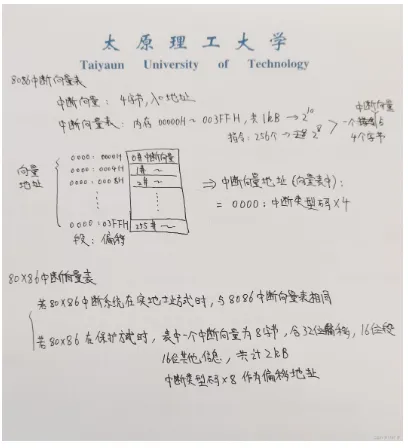 太原理工大学
Taiyaun University of Technology
8086中断向量表
中断向量：4字节，入口地址
中断向量表：内存 00000H ~ 003FFH，共1kB → 2^10
指令：256个 → 2^8
中断向量
一个占
4个字节
向量
地址
0000:0000H 0# 中断向量
0000:0004H 1# ~
0000:0008H 2# ~
0000:03FFH 255# ~
段：偏移
⇒ 中断向量地址（向量表中）：
= 0000:中断类型码×4
80X86中断向量表
若80X86中断系统在实地址方式时，与8086中断向量表相同
若80X86在保护方式时，表中一个中断向量为8字节，含32位偏移，16位段
16位其他信息，共计2kB
中断类型码×8 作为偏移地址